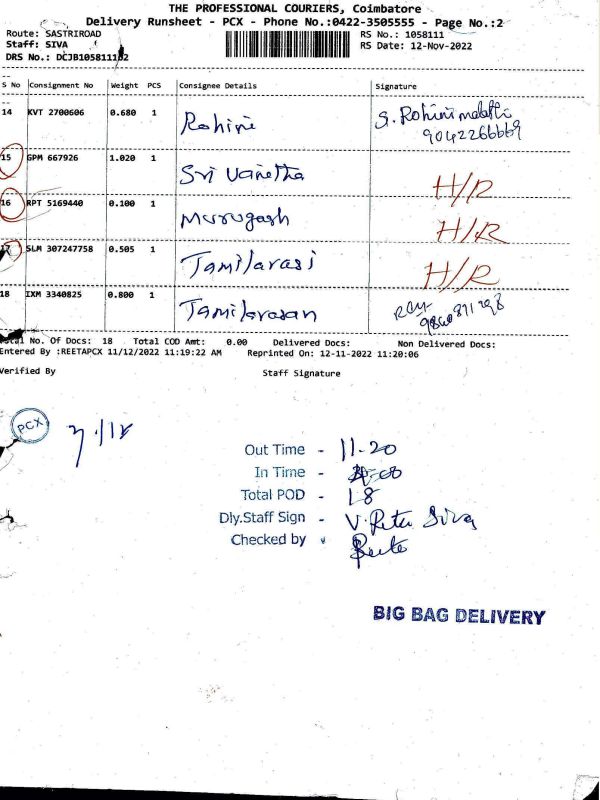 THE PROFESSIONAL COURIERS, Coimbatore
Delivery Runsheet - PCX - Phone No.:0422-3505555 - Page No.:2
Route: SASTRIROAD RS No.: 1058111
Staff: SIVA RS Date: 12-Nov-2022
DRS No.: DCJB105811102
S No Consignment No Weight PCS Consignee Details Signature
14 KVT 2700606 0.680 1 Rohini S. Rohinimalathi
9042266669
15 GPM 667926 1.020 1 Sri Vanetha H/R
16 RPT 5169440 0.100 1 Murugash H/R
17 SLM 307247758 0.505 1 Tamilarasi H/R
18 IXM 3340825 0.800 1 Tamilarasan
Total No. Of Docs: 18 Total COD Amt: 0.00 Delivered Docs: Non Delivered Docs:
Entered By :REETAPCX 11/12/2022 11:19:22 AM Reprinted On: 12-11-2022 11:20:06
Verified By Staff Signature
PCX
Out Time - 11-20
In Time -
Total POD - 18
Dly.Staff Sign - V. Siva
Checked by
BIG BAG DELIVERY